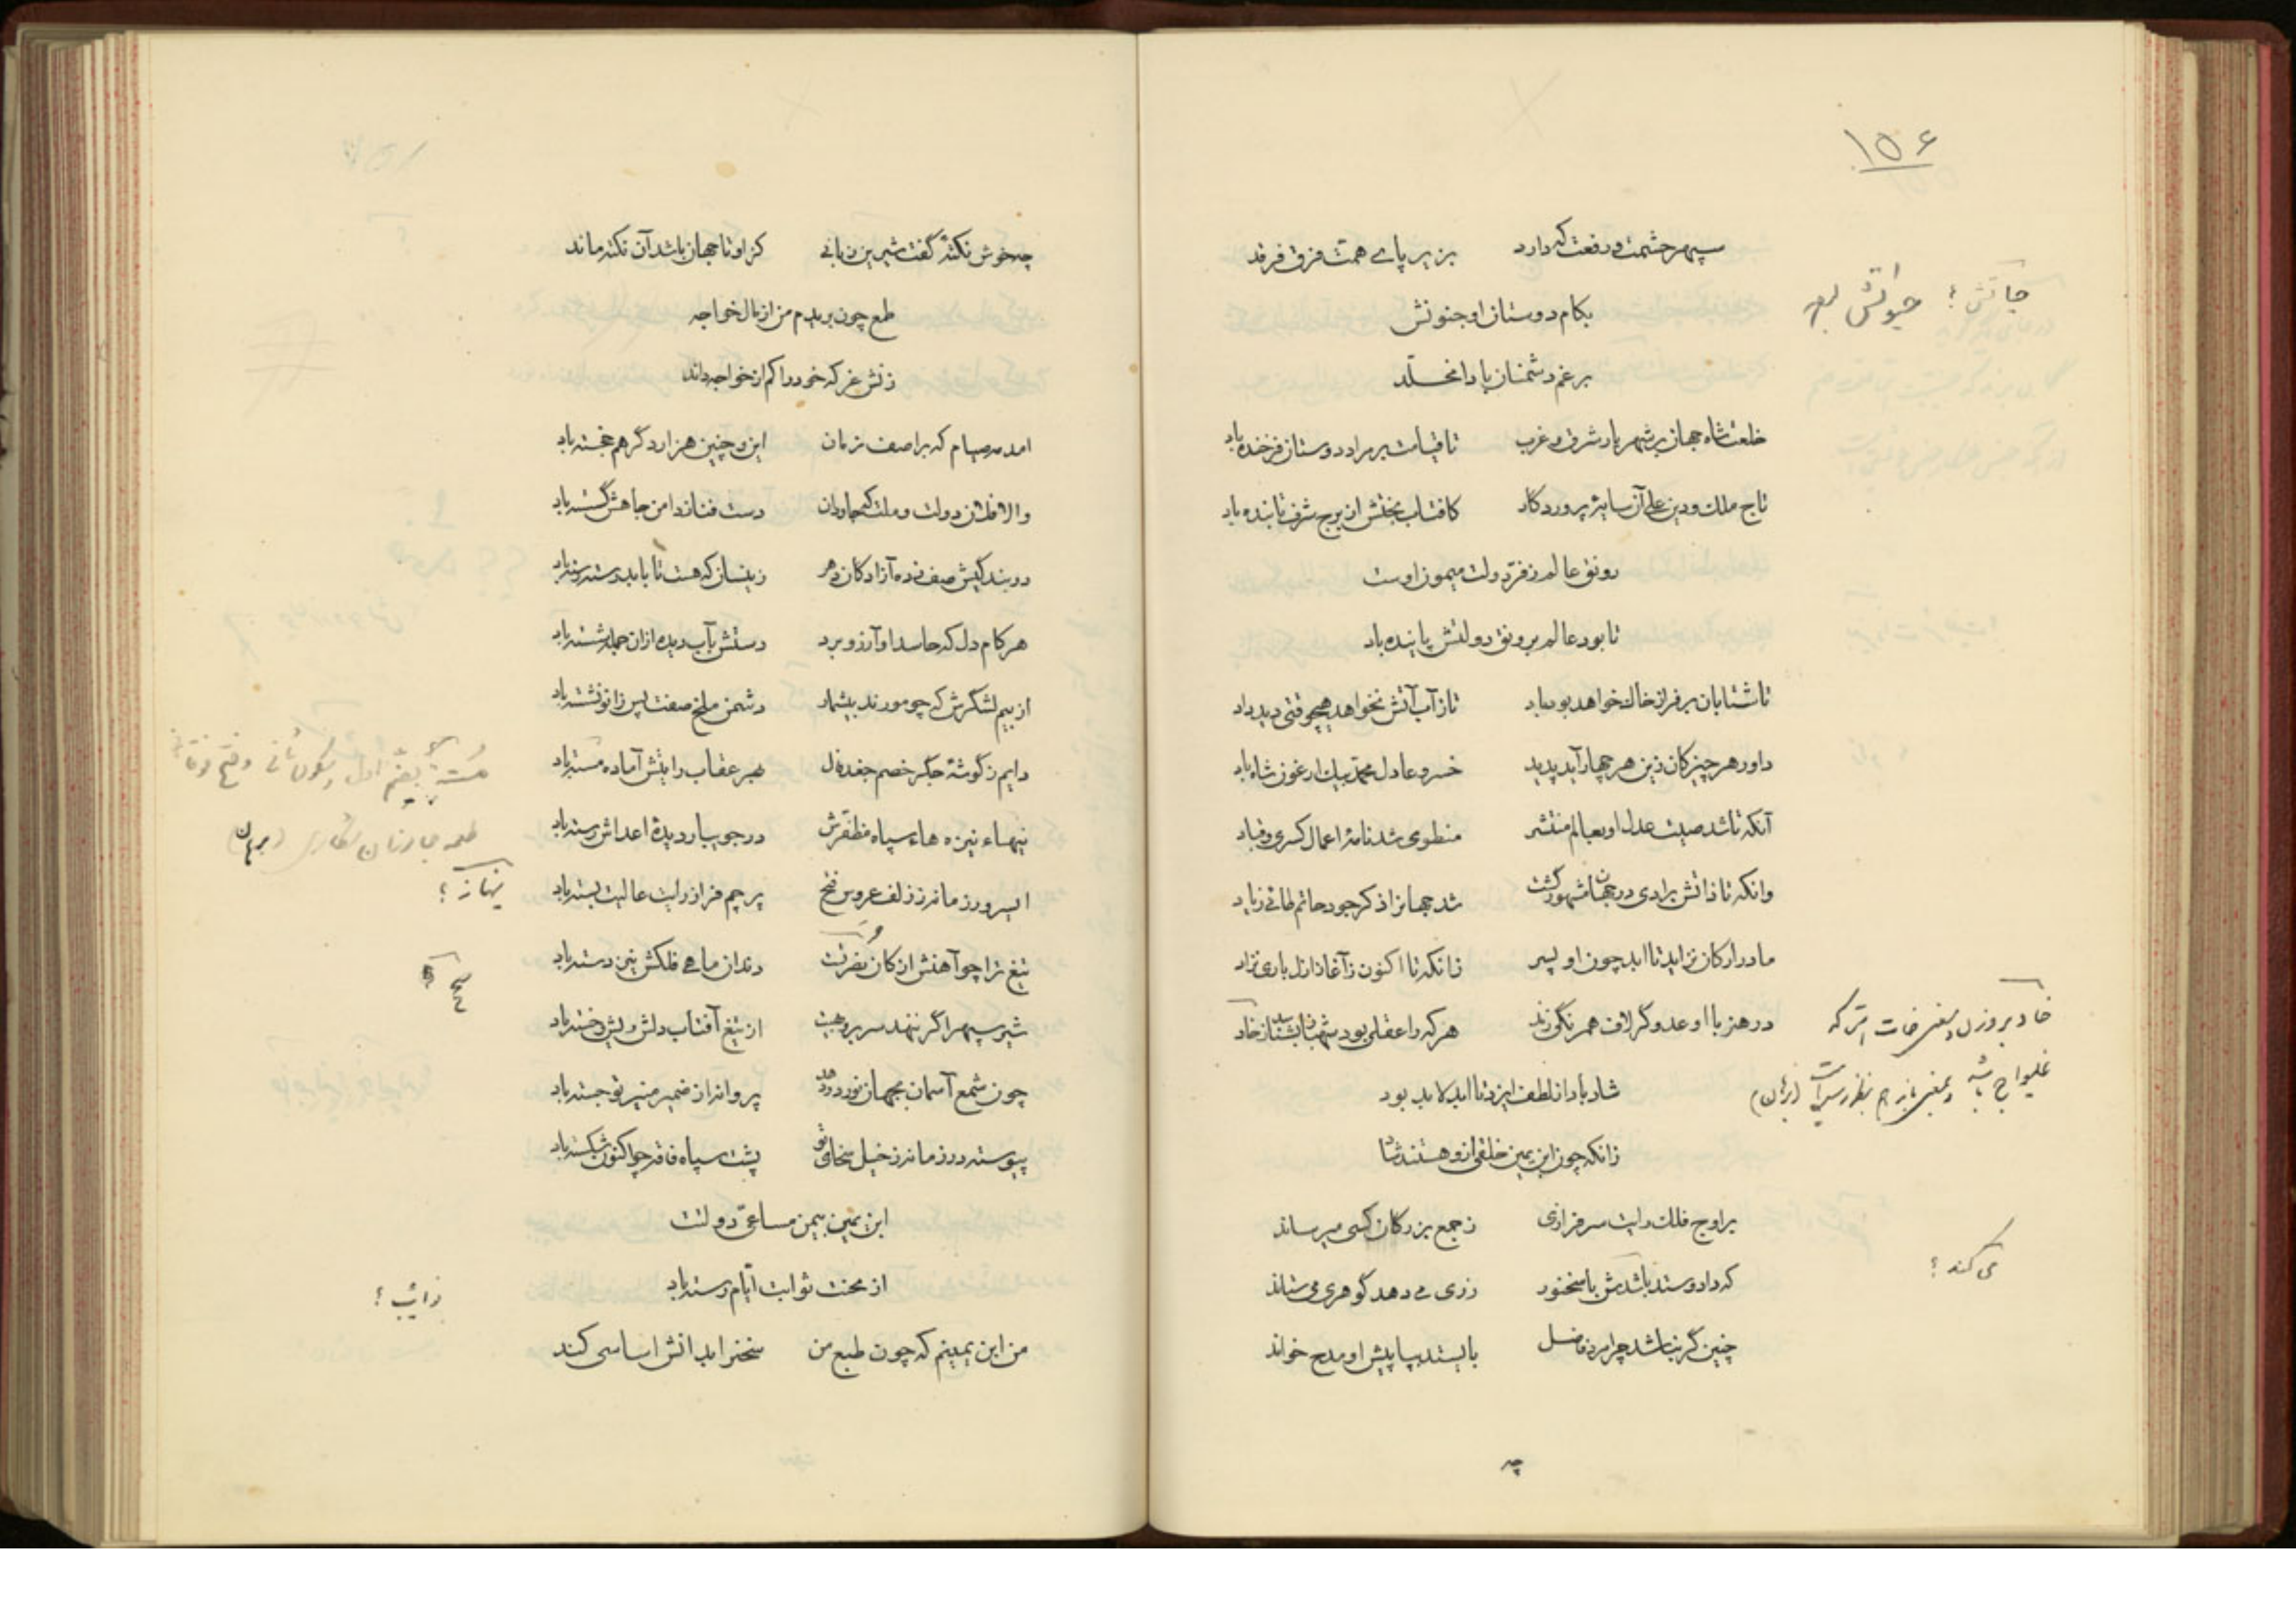 ۱۵۶
سپهر حشمت و رفعت که دارد بزیر پای همت فرق فرقد
بکام دوستان او جنونش
جاتش ؟ حیوتش
برغم دشمنان بادا مخلّد
خلعت شاه جهان بر شهریار شرق و غرب تا قیامت بر مراد دوستان فرخنده باد
تاج ملك و دین علی آن سایۀ پروردگار کافتاب بختش از برج شرف تابنده باد
رونق عالم ز فرّ دولت میمون اوست
تا بود عالم برونق دولتش پاینده باد
تا شتابان بر فراز خاك خواهد بود باد تا ز آب آتش نخواهد هیچوقتی دید داد
داور هر چیز کان زین هر چهار آید پدید خسرو عادل محمد بیك ارغون شاه باد
آنکه تا شد صیت عدل او بعالم منتشر منطوی شد نامۀ اعمال کسری و قباد
وانکه تا ذاتش برادی در جهان مشهور گشت شد جهانرا ذکر جود حاتم طائی ز یاد
مادر ارکان نزاید تا ابد چون او پسر زانکه تا اکنون ز آغاز ازل باری نزاد
در هنر با او عدو گر لاف همرنگی زند هر که را عقلی بود شهباز بشناسد ز خاد
خاد بر وزن و معنی خات است که
غلیواج باشد و بمعنی باز هم بنظر رسیده است (برهان)
شاد باد از لطف ایزد تا ابد لابد بود
زانکه چون ابن یمین خلقی ازو هستند شاد
بر اوج فلك رایت سرفرازی ز جمع بزرگان کسی میرساند
که داد و ستد باشدش با سخنور زری می دهد گوهری می ستاند
می کند ؟
چنین گر نباشد چرا مرد فاضل بایستد بپا پیش او مدح خواند
چه
چه خوش نکتۀ گفت شیرین زبانی کزو تا جهان باشد آن نکته ماند
طمع چون بریدم من از مال خواجه
زنش غر که خود را کم از خواجه داند
آمد مه صیام که بر آصف زمان این و چنین هزار دگر هم خجسته باد
والا فلان دولت و ملت که جاودان دست فنا ز دامن جاهش گسسته باد
در بند کیش صف زده آزادکان دهر زینسان که هست تا بابد دسته دسته باد
هر کام دل که حاسد او آرزو برد دستش بآب دیده ازان جمله شسته باد
از بیم لشگرش که چو مورند بیشمار دشمن ملخ صفت پس زانو نشسته باد
دایم ز گوشۀ جگر خصم جغد دل بهر عقاب رایتش آماده مسته باد
مسته بضم اول و سکون ثانی و فتح فوقانی
طعمه جانوران شکاری (برهان)
نیهاء نیزه هاء سپاه مظفرش در جویبار دیدۀ اعداش رسته باد
ینهاز ؟
پرچم فراز رایت عالیت بسته باد
تیغ ترا چو آهنش از کان نصرتت دندان ماهی فلکش تیز دسته باد
شیر سپهر اگر ننهد سر بر وهبت از تیغ آفتاب دلش ریش و خسته باد
چون شمع آسمان بجهان نور در دهد پروانه از ضمیر منیر تو جسته باد
پیوسته در زمانه ز خیل سخای تو پشت سپاه فاقه چو اکنون شکسته باد
ابن یمین بیمن مساعیّ دولتت
از محنت نوایت ایّام رسته باد
نوائب ؟
من ابن یمینم که چون طبع من سخنرا بدانش اساسی کند